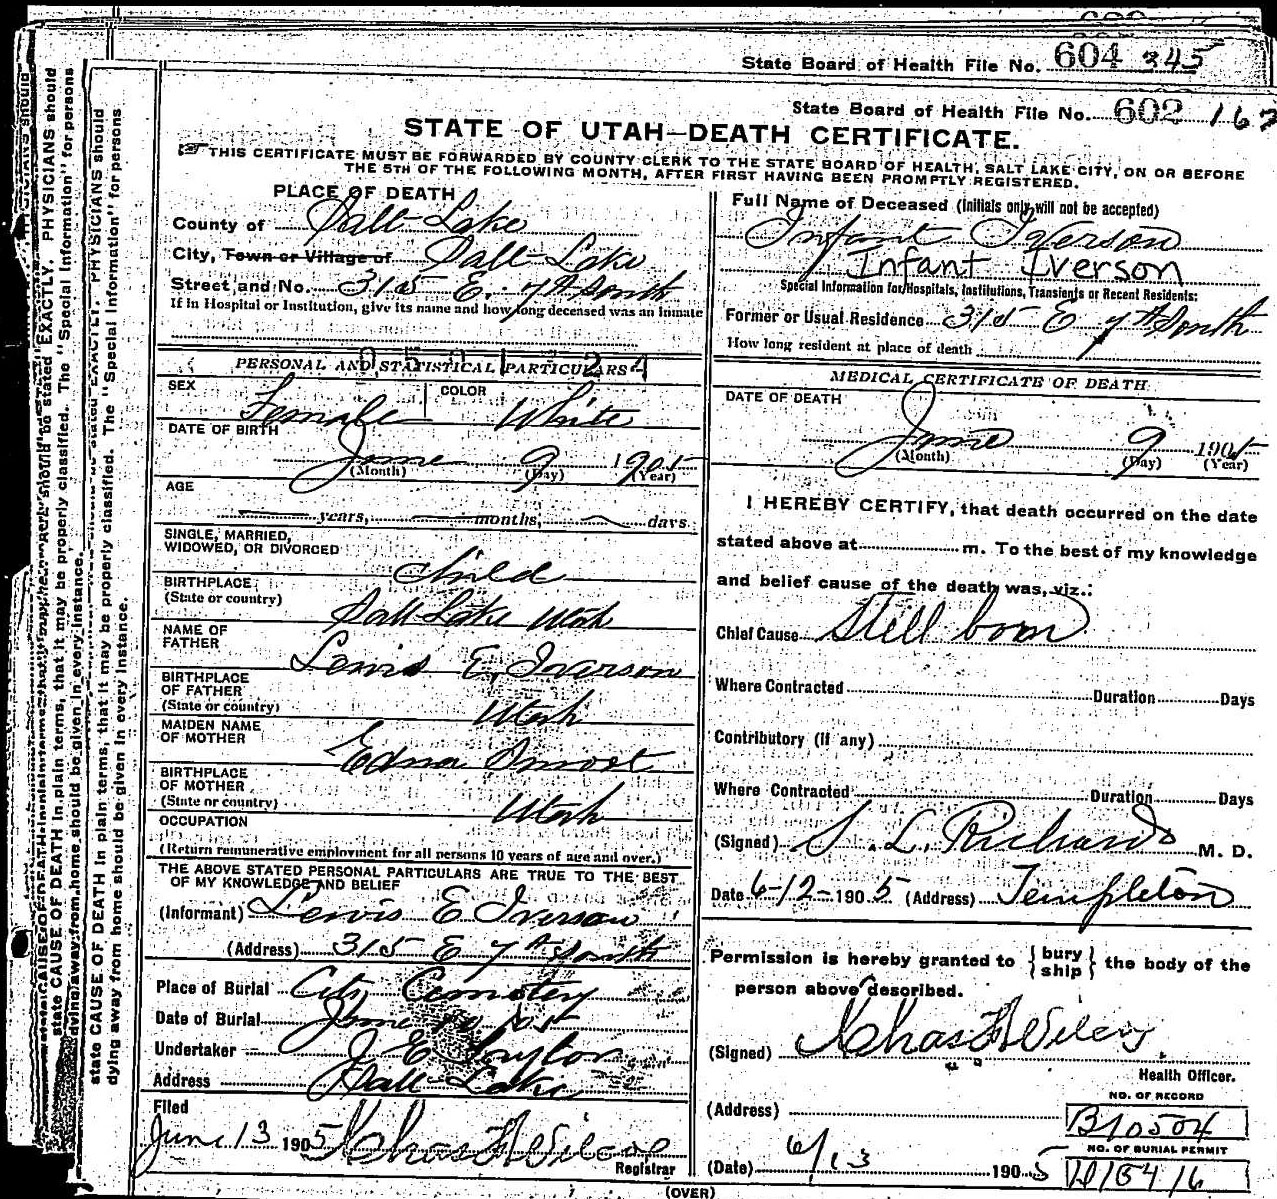 State Board of Health File No. 604 345
State Board of Health File No. 602 162
STATE OF UTAH—DEATH CERTIFICATE.
THIS CERTIFICATE MUST BE FORWARDED BY COUNTY CLERK TO THE STATE BOARD OF HEALTH, SALT LAKE CITY, ON OR BEFORE
THE 5TH OF THE FOLLOWING MONTH, AFTER FIRST HAVING BEEN PROMPTLY REGISTERED.
PLACE OF DEATH
County of Salt Lake
City, Town or Village of Salt Lake
Street and No. 315 E. 7th South
If in Hospital or Institution, give its name and how long deceased was an inmate
PERSONAL AND STATISTICAL PARTICULARS
SEX Female COLOR White
DATE OF BIRTH
June 9 1905
(Month) (Day) (Year)
AGE
years, months, days.
SINGLE, MARRIED,
WIDOWED, OR DIVORCED
Child
BIRTHPLACE
(State or country)
Salt Lake Utah
NAME OF
FATHER
Lewis E. Iverson
BIRTHPLACE
OF FATHER
(State or country)
Utah
MAIDEN NAME
OF MOTHER
Edna
BIRTHPLACE
OF MOTHER
(State or country)
Utah
OCCUPATION
(Return remunerative employment for all persons 10 years of age and over.)
THE ABOVE STATED PERSONAL PARTICULARS ARE TRUE TO THE BEST
OF MY KNOWLEDGE AND BELIEF
(Informant) Lewis E Iverson
(Address) 315 E 7th South
Place of Burial City Cemetery
Date of Burial June 10 1905
Undertaker J. E. Taylor
Address Salt Lake
Filed
June 13 1905 Chas F Wilcox
Registrar
Full Name of Deceased (Initials only will not be accepted)
Infant Iverson
Infant Iverson
Special Information for Hospitals, Institutions, Transients or Recent Residents:
Former or Usual Residence 315 E 7th South
How long resident at place of death
MEDICAL CERTIFICATE OF DEATH
DATE OF DEATH
June 9 1905
(Month) (Day) (Year)
I HEREBY CERTIFY, that death occurred on the date
stated above at m. To the best of my knowledge
and belief cause of the death was, viz.:
Chief Cause Still born
Where Contracted Duration Days
Contributory (if any)
Where Contracted Duration Days
(Signed) S. L. Richards M. D.
Date 6-12-1905 (Address) Templeton
Permission is hereby granted to { bury ship } the body of the
person above described.
(Signed) Chas F Wilcox
Health Officer.
(Address)
NO. OF RECORD
B10504
(Date) 6/13 1905
NO. OF BURIAL PERMIT
(OVER)
state CAUSE OF DEATH in plain terms, that it may be properly classified. The "Special Information" for persons
dying away from home should be given in every instance.